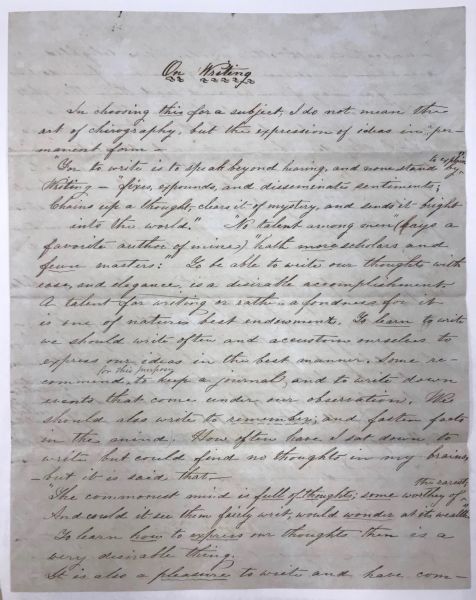 On Writing
In choosing this for a subject, I do not mean the
art of chirography, but the expression of ideas in "per-
manent form —
"For to write is to speak beyond hearing, and none stand by
to explain"
Writing — "fixes, expounds, and disseminate sentiments;
Chains up a thought, clears it of mystery, and sends it bright
into the world." "No talent among men" (says a
favorite author of mine,) "hath more scholars and
fewer masters:" To be able to write our thoughts with
ease, and elegance, is a desirable accomplishment.
A talent for writing or rather a fondness for it
is one of natures best endowments. To learn to write
we should write often and accustom ourselves to
express our ideas in the best manner. Some re-
commend, for this purpose
to keep a journal, and to write down
events that come under our observation. We
should also write to remember, and fasten facts
in the mind. How often have I sat down to
write but could find no thoughts in my brains,
— but it is said that —
the rarest,
The commonest mind is full of thoughts; some worthy of
And could it see them fairly writ, would wonder at its wealth"
To learn how to express our thoughts then is a
very desirable thing.
It is also a pleasure to write and have com-